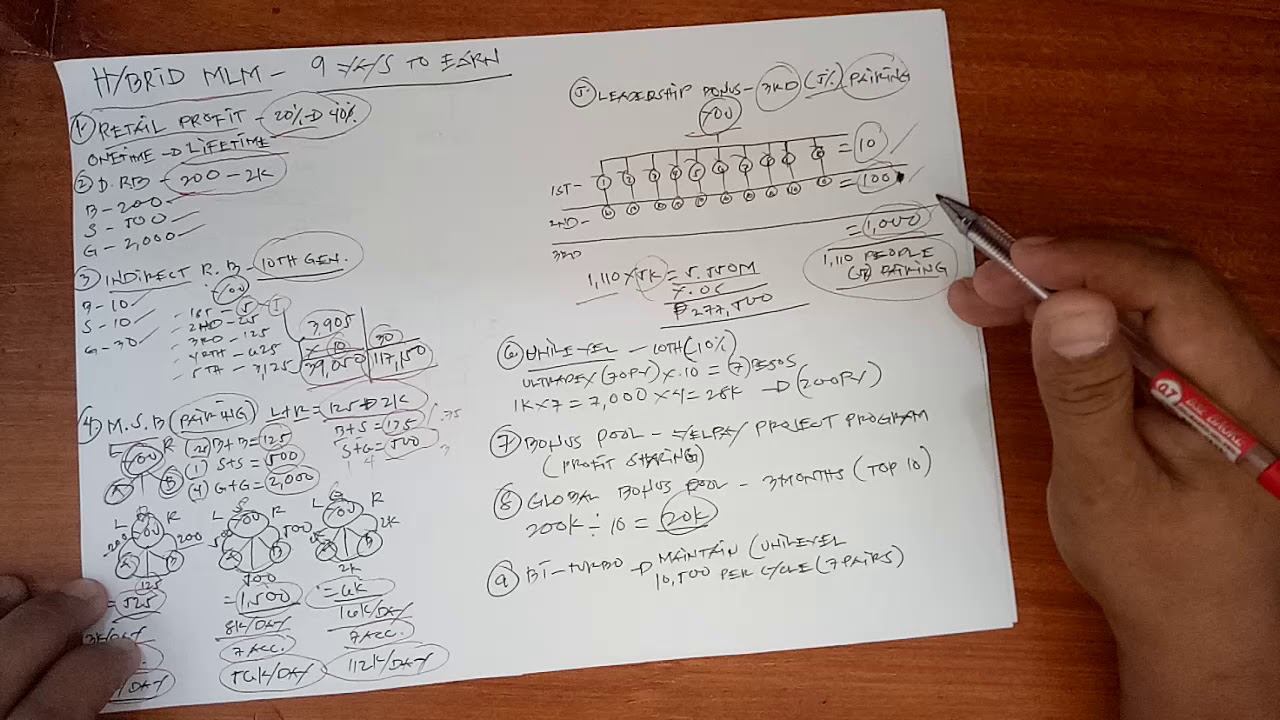 HYBRID MLM - 9 WAYS TO EARN
① RETAIL PROFIT - 20% → 40%
ONETIME → LIFETIME
② D.RB - 200 - 2K
B - 200
S - 500
G - 2,000
③ INDIRECT R.B - 10TH GEN.
B - 10
S - 10
G - 30
YOU
1ST - 5 - 1
2ND - 25
3RD - 125
4TH - 625
5TH - 3,125
3,905
X 10
39,050
30
117,150
④ M.S.B (PAIRING) L+R = 125 → 2K
L YOU R
A B
B+B = 125
(1) S+S = 500
(4) G+G = 2,000
B+S = 125
S+G = 500
L B R
YOU
200 200
A B
125
= 525
3K/DAY
/DAY
L S R
YOU
500 500
A B
500
= 1,500
8K/DAY
7 ACC.
56K/DAY
L G R
YOU
2K 2K
A B
2K
= 6K
16K/DAY
7 ACC.
112K/DAY
⑤ LEADERSHIP BONUS - 3RD (5%) PAIRING
YOU
1ST - 1 2 3 4 5 6 7 8 9 10 = 10
2ND - 10 10 10 10 10 10 10 10 10 10 = 100
3RD = 1,000
1,110 PEOPLE
(5%) PAIRING
1,110 X 5K = 5.550M
X .05
₱277,500
⑥ UNILEVEL - 10TH (10%)
(70PV) X .10 = (7) PESOS
1K X 7 = 7,000 X 4 = 28K → (200PV)
⑦ BONUS POOL - PROJECT PROGRAM
(PROFIT SHARING)
⑧ GLOBAL BONUS POOL - 3 MONTHS (TOP 10)
200K ÷ 10 = 20K
⑨ BI-TURBO → MAINTAIN (UNILEVEL
10,500 PER CYCLE (7 PAIRS)
0.7